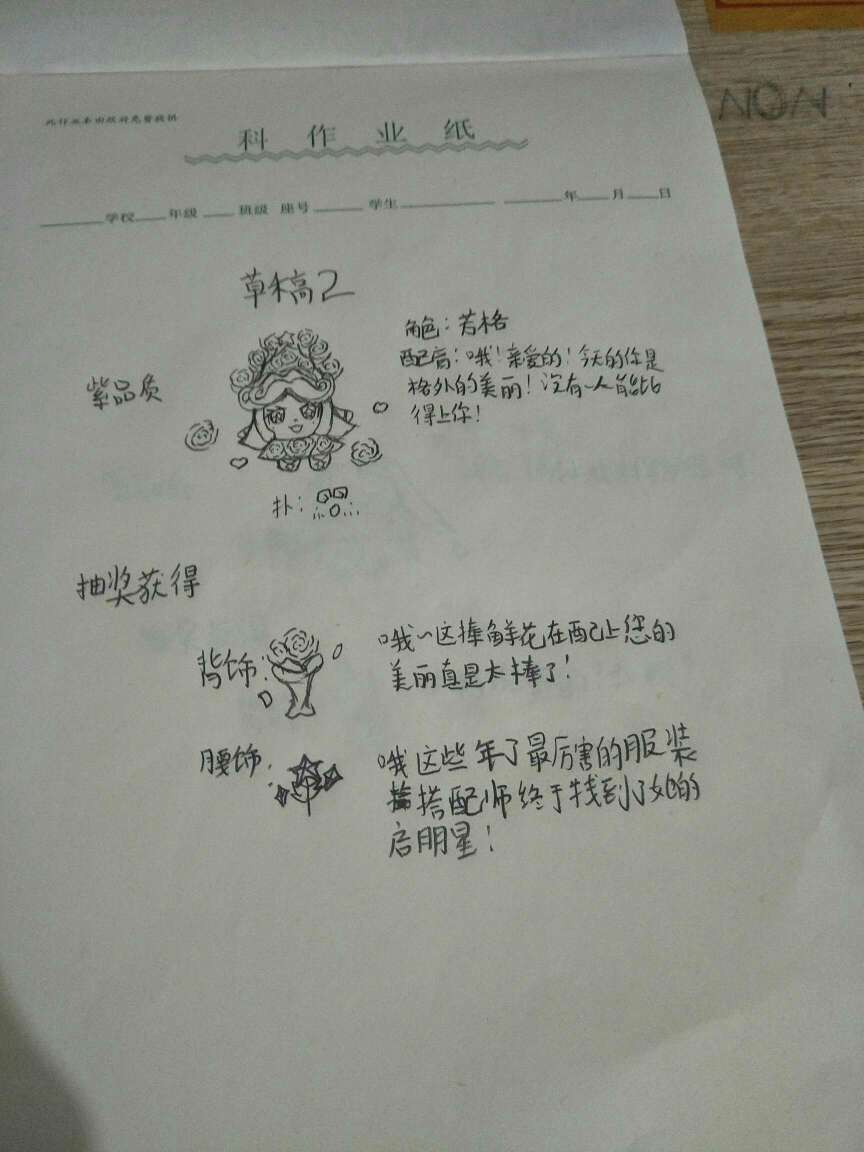 此作业本由政府免费提供
科 作 业 纸
学校 年级 班级 座号 学生 年 月 日
草稿2
紫品质
角色：芳格
配音：哦！亲爱的！今天的你是
格外的美丽！没有一人能比
得上你！
扑：
抽奖获得
背饰：
哦~这捧鲜花在配上您的
美丽真是太棒了！
腰饰：
哦这些年了最厉害的服装
搭配师终于找到了她的
启明星！